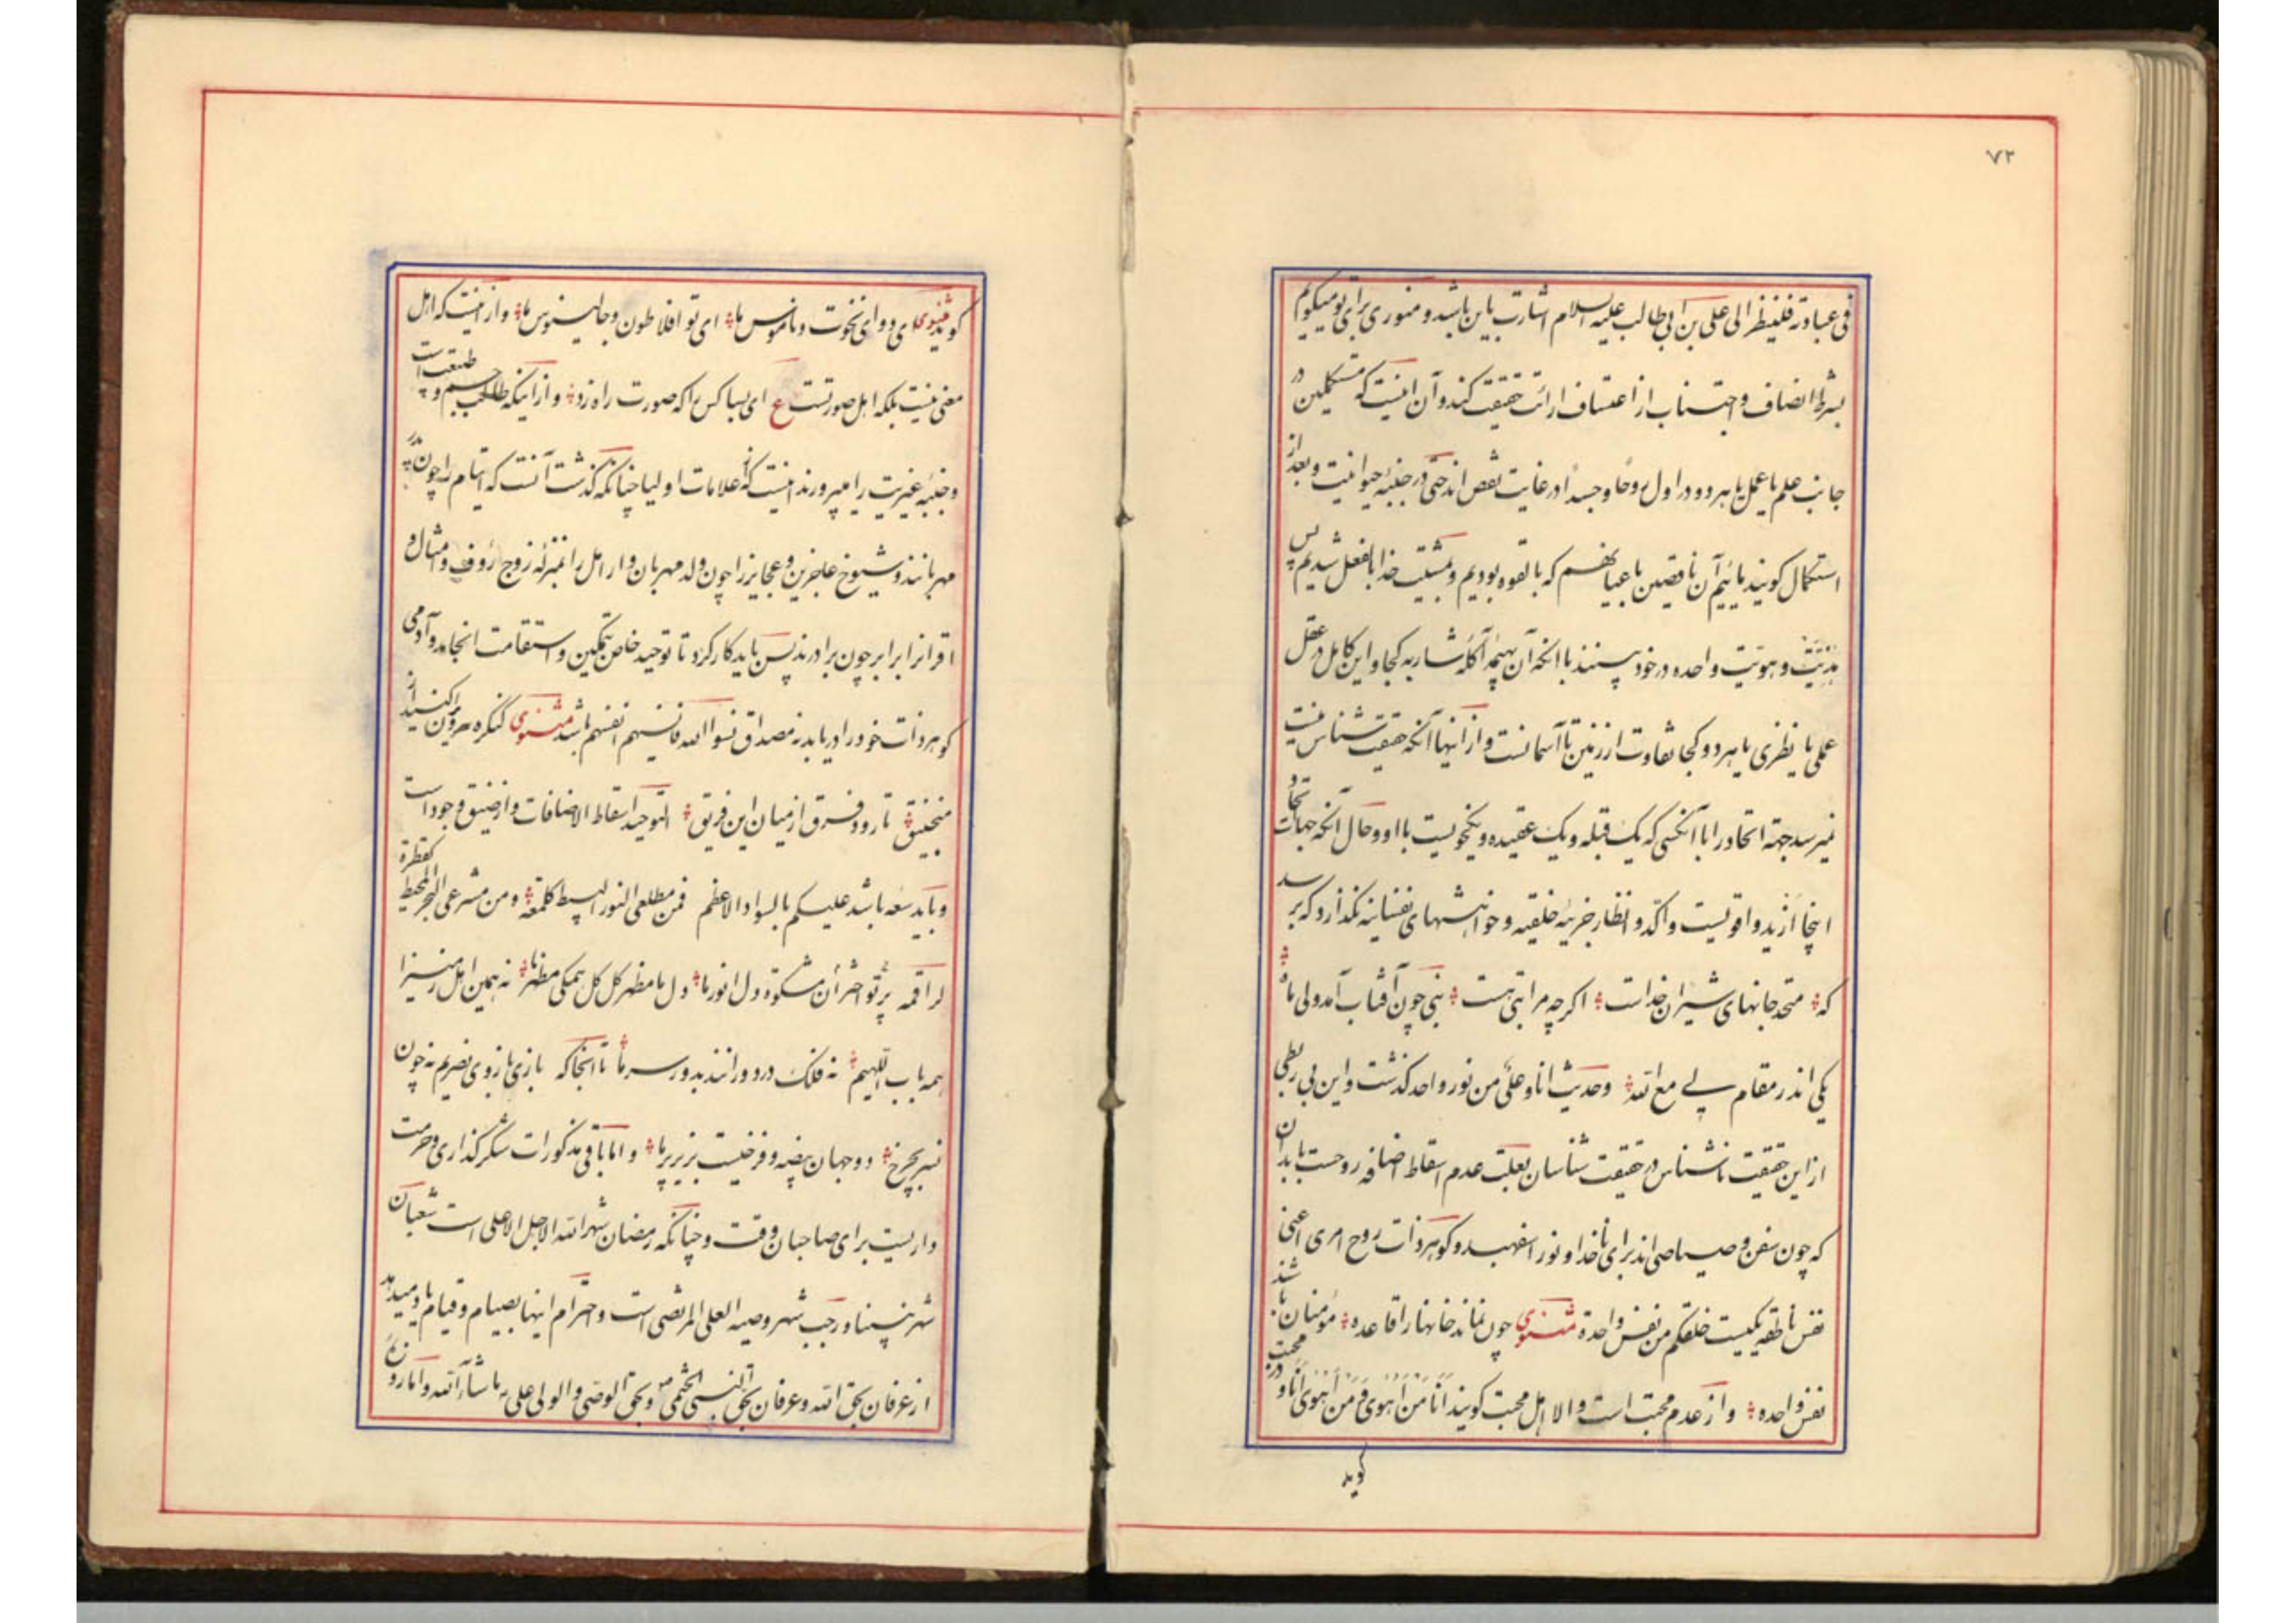 ۷۲
فی عبادته فلینظر الی علی بن ابی طالب علیه السلام اشارت باین باشد و منوری برای تو میگویم
بشرط انصاف و اجتناب از اعتساف ارائت حقیقت کند و آن اینست که مستکملین در
جانب علم یا عمل یا هر دو در اول روحا و جسدا در غایت نقص اند حتی در جنبه حیوانیت و بعد از
استکمال کویند مائیم آن ناقصین باعیانهم که بالقوه بودیم و بمشیت خدا بالفعل شدیم پس
هذیت و هویت واحده در خود بینند با انکه آن بهیمه آکله شاربه کجا و این کامل در عقل
عملی یا نظری یا هر دو کجا تفاوت از زمین تا آسمانست و از اینها آنکه حقیقت شناس نیست
نمیرسد جهة اتحاد را با آنکسی که یک قبله و یک عقیده و یکخویست با او و حال آنکه جهات اتحاد
اینجا ازید و اقویست و آکد و انظار جزییه خلقیه و خواهشهای نفسانیه نکذارد که بر سد
که متحد جانهای شیران خداست اکرچه مراتبی هست نبی چون آفتاب آمد ولی ماه
یکی اندر مقام لی مع الله و حدیث انا و علی من نور واحد کذشت و این بی ربطی
از این حقیقت ناشناس در حقیقت شناسان بعلت عدم اسقاط اضافه روحست بابدان
که چون سفن و صیاصی اند برای ناخدا و نور اسفهبد و کوهر ذات روح امری اعنی
نفس ناطقه یکیست خلقکم من نفس واحدة مثنوی چون نماند خانها را قاعده مؤمنان باشند
نفس واحده و از عدم محبت است و الا اهل محبت کویند انا من اهوی و من اهوی انا و در محبت
کوید
کوید مثنوی ای دوای نخوت و ناموس ما ای تو افلاطون و جالینوس ما و از اینست که اهل
معنی نیست بلکه اهل صورتست ع ای بسا کس را که صورت راه زد و از اینکه طالب جسم و طبیعت است
و جنبه غیریت را میپرورند اینست که از علامات اولیا چنانکه کذشت آنست که ایتام را چون پدر
مهربانند و شیوخ عاجزین و عجایز را چون ولد مهربان و ارامل را بمنزله زوج رؤف و امثال و
اقران را برابر چون برادرند پس باید کار کرد تا توحید خاص بتمکین و استقامت انجامد و آدمی
کوهر ذات خود را دریابد نه مصداق نسوا الله فانسیهم انفسهم باشد مثنوی کنکره ویران کنید از
منجنیق تا رود فرق از میان این فریق التوحید اسقاط الاضافات و از ضیق وجود است
و باید سعه باشد علیکم بالسواد الاعظم فمن مطلعی النور البسیط کلمعة و من مشرعی البحر المحیط کقطرة
لراقمه پرتو اختر آن مشکوة دل انور ما دل ما مظهر کل کل همکی مظهر ما نه همین اهل زمین را
همه باب اللهیم نه فلک در دورانند بدور سر ما تا آنجا که بازی بازوی نصریم نه چون
نسر بچرخ دو جهان بیضه و فرخیست بزیر پر ما و اما باقی مذکورات شکر کذاری و حرمت
داریست برای صاحبان وقت و چنانکه رمضان شهر الله الاجل الاعلی است شعبان
شهر نبینا و رجب شهر وصیه العلی المرتضی است و احترام اینها بصیام و قیام یاد میدهد
از عرفان بحق الله و عرفان بحق النبی الختمی ص و بحق الوصی و الولی علی ما شاء الله و اما روز